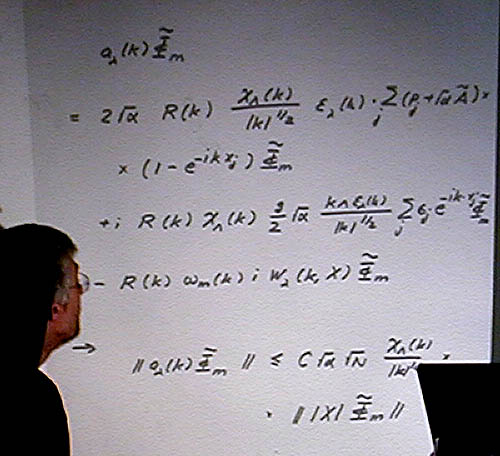 a_λ(k) Φ̃_m
= 2√α R(k) χ_Λ(k)/|k|^{1/2} ε_λ(k) · Σ_j (p_j + √α Ã) ×
× (1 - e^{-ikx_j}) Φ̃_m
+ i R(k) χ_Λ(k) g/2 √α k∧ε_λ(k)/|k|^{1/2} Σ_j σ_j e^{-ik·x_j} Φ̃_m
- R(k) ω_m(k) i W_λ(k, X) Φ̃_m
→ ‖a_λ(k) Φ̃_m‖ ≤ C √α √N χ_Λ(k)/|k|^{1/2} ×
× ‖ |X| Φ̃_m ‖